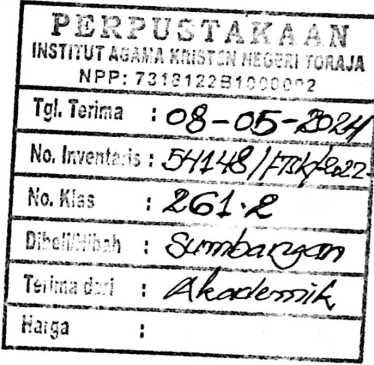 PERPUSTAKAAN
INSTITUT AGAMA KRISTEN NEGERI TORAJA
NPP: 7318122B1000002
Tgl. Terima : 08-05-2024
No. Inventaris : 54148/FTBK/2022
No. Klas : 261.2
Dibeli/Hibah : Sumbangan
Terima dari : Akademik
Harga :